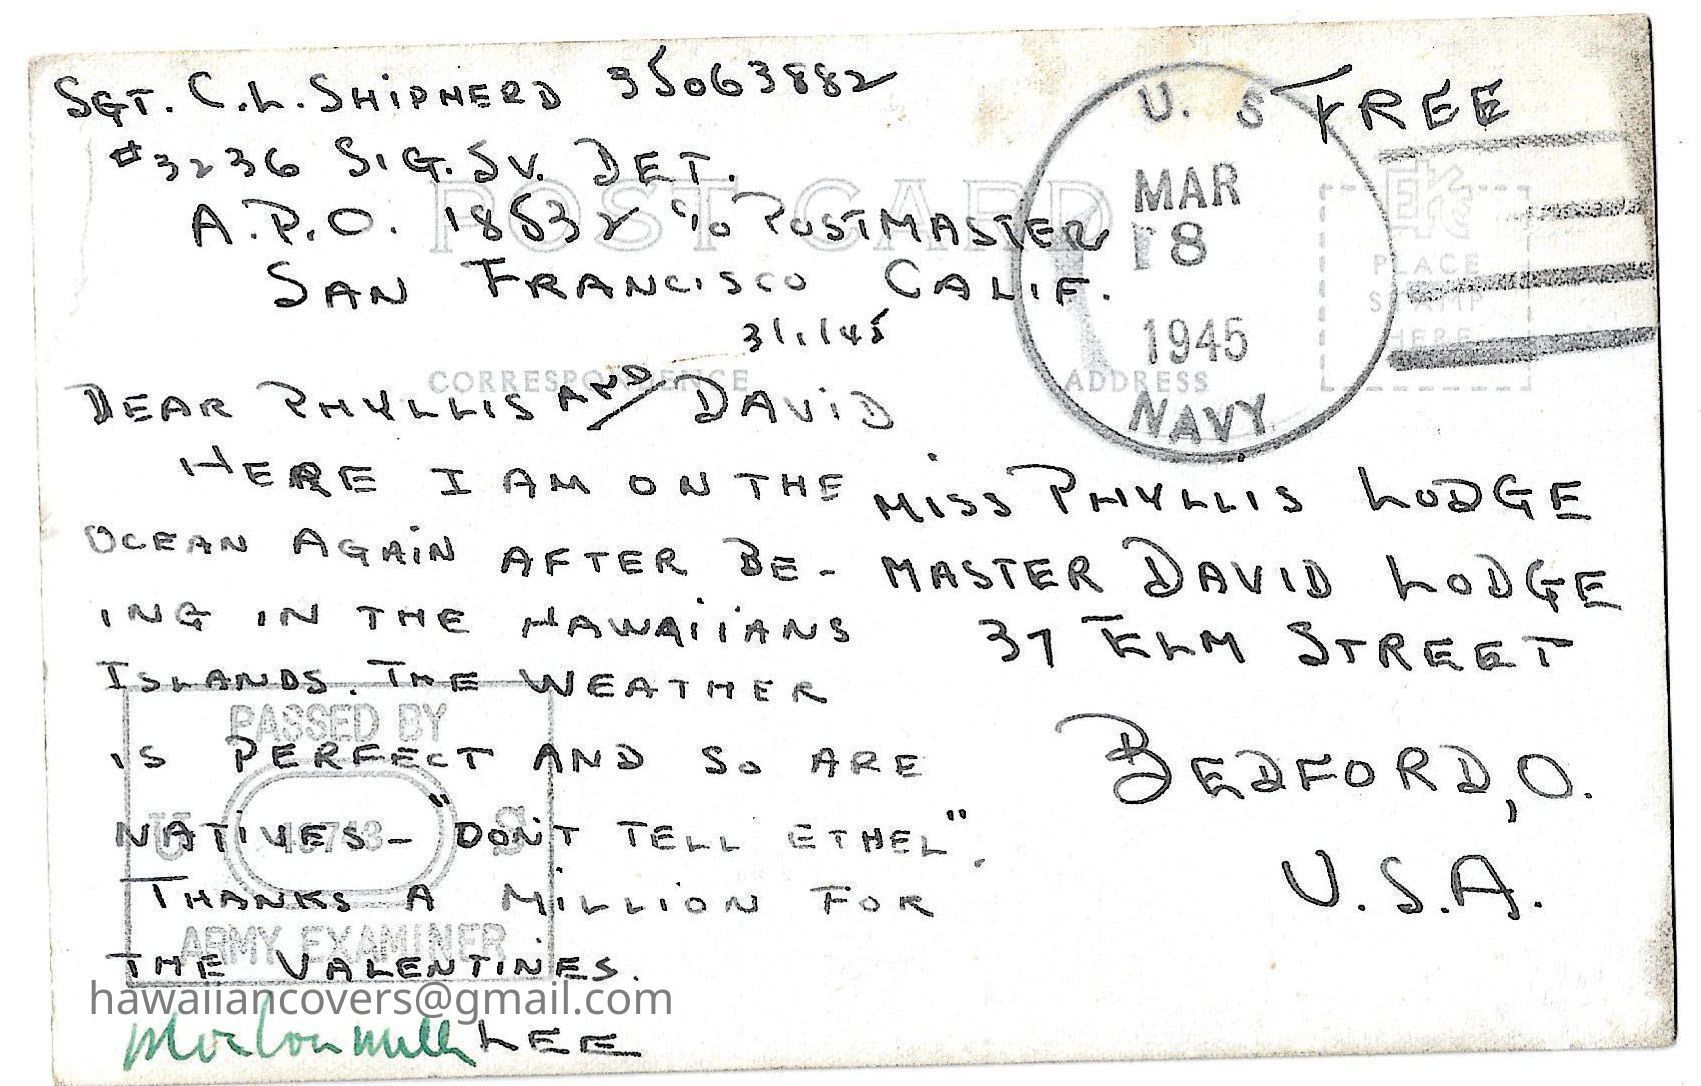 SGT. C.L. SHIPHERD 35063882
#3236 SIG. SV. DET.
A.P.O. 18532 c/o POSTMASTER
SAN FRANCISCO CALIF.
POST CARD
U. S.
MAR
18
1945
NAVY
FREE
PLACE
STAMP
HERE
3/1/45
CORRESPONDENCE
ADDRESS
DEAR PHYLLIS AND DAVID
HERE I AM ON THE
OCEAN AGAIN AFTER BE-
ING IN THE HAWAIIANS
ISLANDS. THE WEATHER
IS PERFECT AND SO ARE
NATIVES - "DON'T TELL ETHEL".
THANKS A MILLION FOR
THE VALENTINES.
LEE
MISS PHYLLIS LODGE
MASTER DAVID LODGE
37 ELM STREET
BEDFORD, O.
U.S.A.
PASSED BY
U S
ARMY EXAMINER
hawaiiancovers@gmail.com